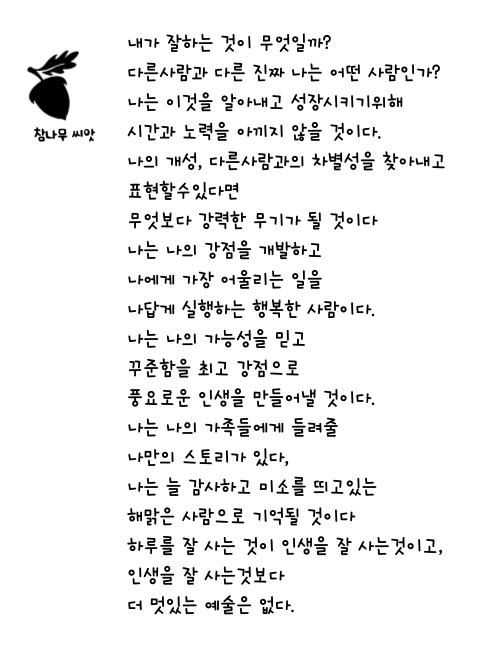 내가 잘하는 것이 무엇일까?
다른사람과 다른 진짜 나는 어떤 사람인가?
나는 이것을 알아내고 성장시키기위해
참나무 씨앗
시간과 노력을 아끼지 않을 것이다.
나의 개성, 다른사람과의 차별성을 찾아내고
표현할수있다면
무엇보다 강력한 무기가 될 것이다
나는 나의 강점을 개발하고
나에게 가장 어울리는 일을
나답게 실행하는 행복한 사람이다.
나는 나의 가능성을 믿고
꾸준함을 최고 강점으로
풍요로운 인생을 만들어낼 것이다.
나는 나의 가족들에게 들려줄
나만의 스토리가 있다,
나는 늘 감사하고 미소를 띄고있는
해맑은 사람으로 기억될 것이다
하루를 잘 사는 것이 인생을 잘 사는것이고,
인생을 잘 사는것보다
더 멋있는 예술은 없다.